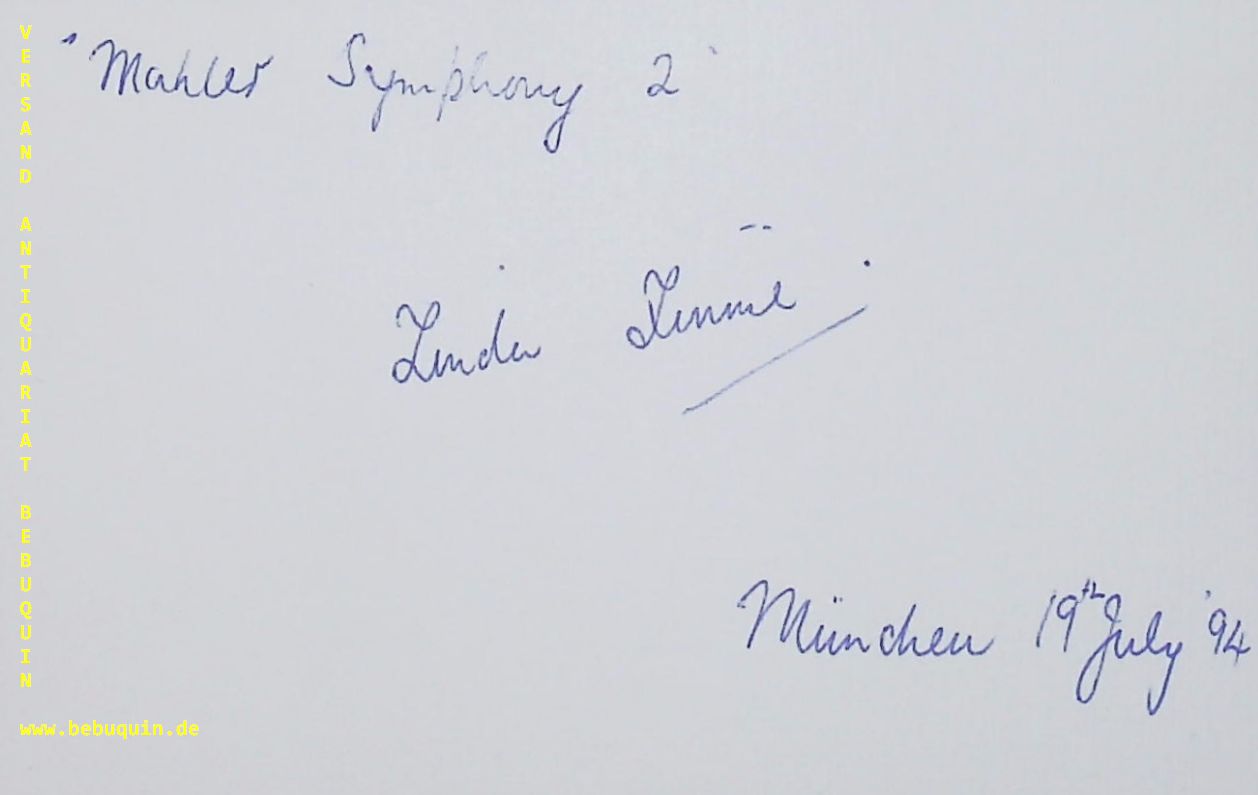 VERSAND ANTIQUARIAT BEBUQUIN
www.bebuquin.de
"Mahler Symphony 2"
Linda Finnie
München 19th July '94